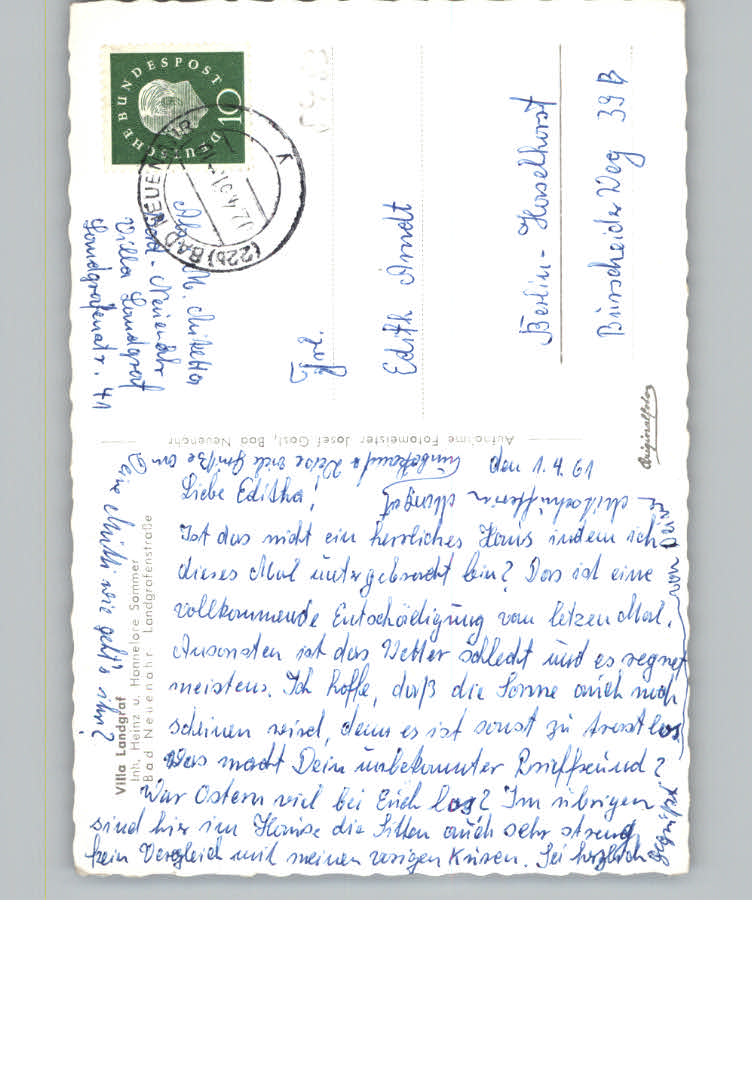 den 1.4.61
Liebe Editha!
Ist das nicht ein herrliches Haus indem ich
dieses Mal untergebracht bin? Das ist eine
vollkommende Entschädigung vom letzen Mal.
Ansonsten ist das Wetter schlecht und es regnet
meistens. Ich hoffe, daß die Sonne auch noch
scheinen wird, denn es ist sonst zu trostlos.
Was macht Dein unbekannter Brieffreund?
War Ostern viel bei Euch los? Im übrigen
sind hier im Hause die Sitten auch sehr streng
kein Vergleich mit meinen vorigen Kuren. Sei herzlich
gegrüßt von Deiner
Mitschülerin Margot
Unbekannter Weise viele Grüße an D
eine Mutti wie geht's ihr?
Villa Landgraf
Inh. Heinz u. Hannelore Sommer
Bad Neuenahr Landgrafenstraße
Aufnahme Fotomeister Josef Gosl, Bad Neuenahr
Originalfoto
DEUTSCHE BUNDESPOST
10
(22b) BAD NEUENAHR
Abs. M.
Bad-Neuenahr
Villa Landgraf
Landgrafenstr. 41
Frl.
Edith Arndt
Berlin-Haselhorst
Burscheider Weg 39B